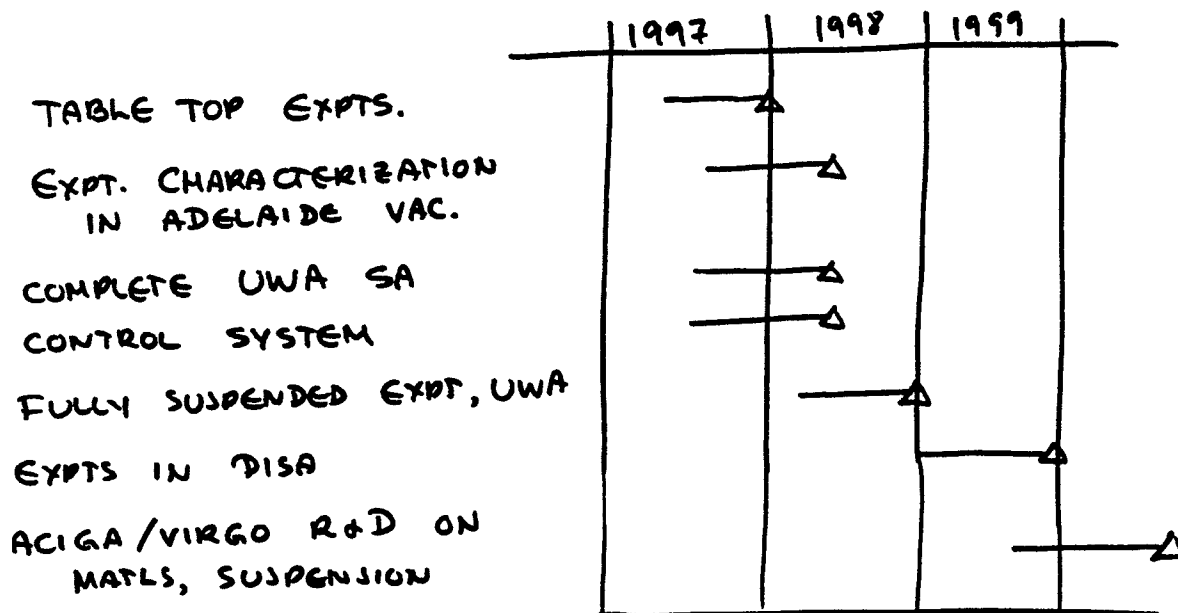 1997 1998 1999
TABLE TOP EXPTS.
EXPT. CHARACTERIZATION
IN ADELAIDE VAC.
COMPLETE UWA SA
CONTROL SYSTEM
FULLY SUSPENDED EXPT, UWA
EXPTS IN PISA
ACIGA/VIRGO R&D ON
MATLS, SUSPENSION